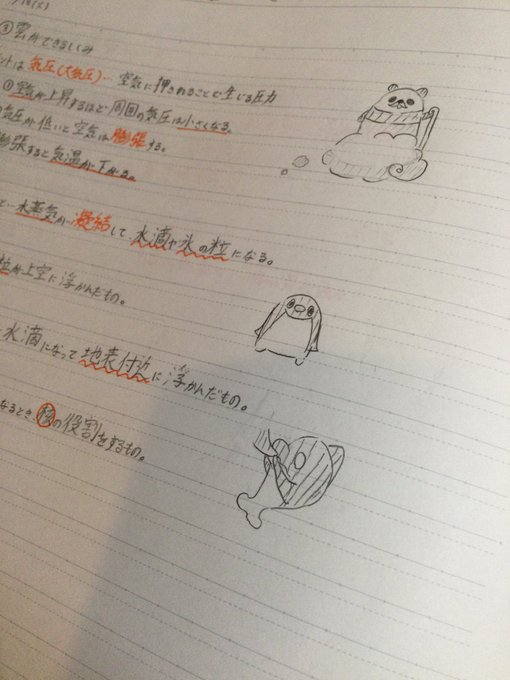 ③雲ができるしくみ
は気圧(大気圧)… 空気に押されることで生じる圧力
①空気が上昇するほど周囲の気圧は小さくなる。
気圧が低いと空気は膨張する。
膨張すると気温が下がる。
水蒸気が凝結して、水滴や氷の粒になる。
粒が上空に浮かんだもの。
水滴になって地表付近に浮かんだもの。
なるとき核の役割をするもの。